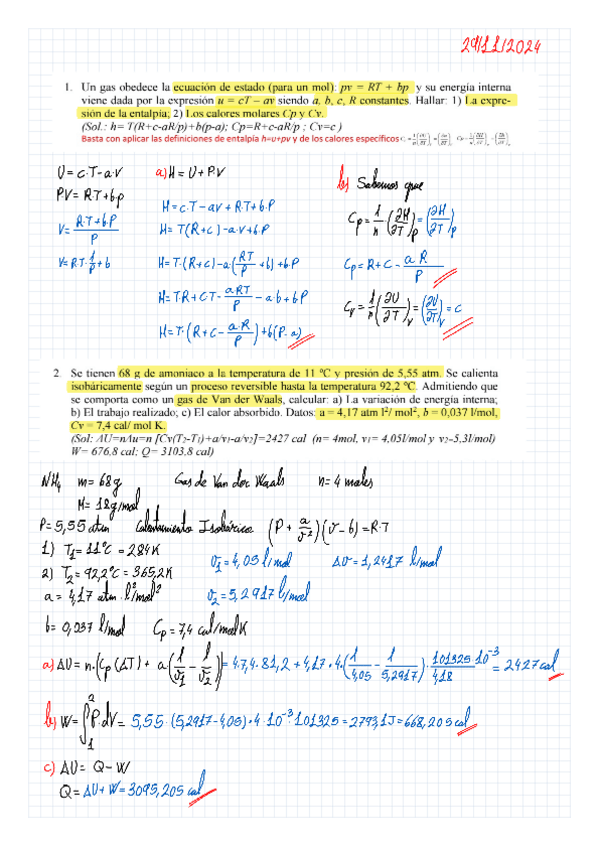 29/11/2024
1. Un gas obedece la ecuación de estado (para un mol): pv = RT + bp y su energía interna
viene dada por la expresión u = cT – av siendo a, b, c, R constantes. Hallar: 1) La expre-
sión de la entalpía; 2) Los calores molares Cp y Cv.
(Sol.: h= T(R+c-aR/p)+b(p-a); Cp=R+c-aR/p ; Cv=c )
Basta con aplicar las definiciones de entalpía h=u+pv y de los calores específicos
U = c·T - a·V
PV = R·T + b·p
V = (R·T + b·P)/P
V = R·T·1/P + b
a) H = U + P·V
H = c·T - aV + R·T + b·P
H = T(R+c) - a·V + b·P
H = T·(R+c) - a·(RT/P + b) + b·P
H = T·R + C·T - aRT/P - a·b + b·P
H = T·(R + C - a·R/P) + b(P-a)
b) Sabemos que
Cp = 1/n·(∂H/∂T)p = (∂H/∂T)p
Cp = R + C - a·R/P
Cv = 1/n(∂U/∂T)v = (∂U/∂T)v = c
2. Se tienen 68 g de amoniaco a la temperatura de 11 ºC y presión de 5,55 atm. Se calienta
isobáricamente según un proceso reversible hasta la temperatura 92,2 ºC. Admitiendo que
se comporta como un gas de Van der Waals, calcular: a) La variación de energía interna;
b) El trabajo realizado; c) El calor absorbido. Datos: a = 4,17 atm l²/ mol², b = 0,037 l/mol,
Cv = 7,4 cal/ mol K.
(Sol: ΔU=nΔu=n [Cv(T2-T1)+a/v1-a/v2]=2427 cal (n= 4mol, v1= 4,05l/mol y v2=5,3l/mol)
W= 676,8 cal; Q= 3103,8 cal)
NH4 m = 68g Gas de Van der Waals n = 4 moles
M = 18g/mol
P = 5,55 atm Calentamiento Isobárico (P + a/v²)(v - b) = R·T
1) T1 = 11ºC = 284K v1 = 4,05 l/mol Δv = 1,2417 l/mol
2) T2 = 92,2ºC = 365,2K v2 = 5,2917 l/mol
a = 4,17 atm·l²/mol²
b = 0,037 l/mol Cp = 7,4 cal/molK
a) ΔU = n·(Cp(ΔT) + a(1/v1 - 1/v2)) = 4·7,4·81,2 + 4,17·4·(1/4,05 - 1/5,2917)·101325·10⁻³/4,18 = 2427 cal
b) W = ∫₁² P·dV = 5,55·(5,2917-4,05)·4·10⁻³·101325 = 2793,1J = 668,205 cal
c) ΔU = Q - W
Q = ΔU + W = 3095,205 cal